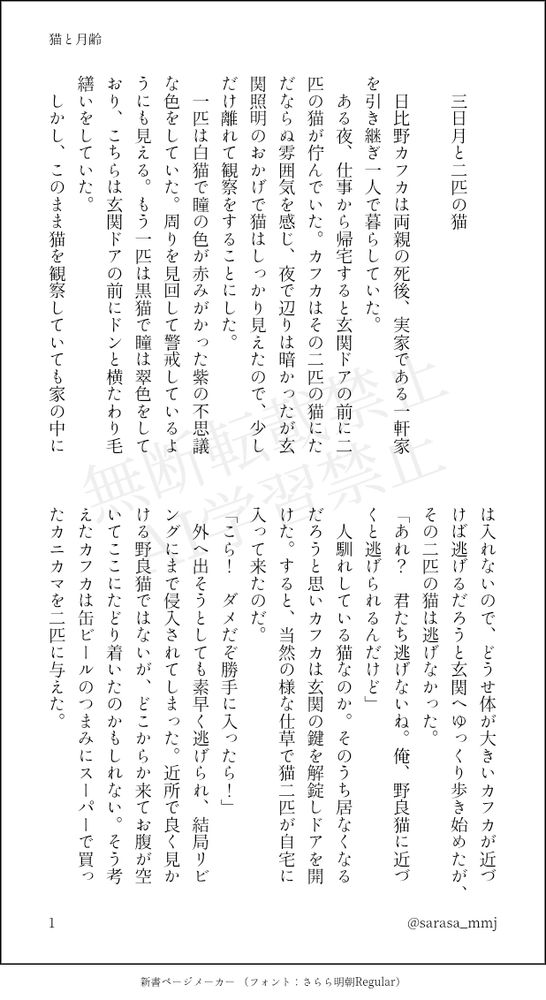 猫と月齢
三日月と二匹の猫
日比野カフカは両親の死後、実家である一軒家
を引き継ぎ一人で暮らしていた。
ある夜、仕事から帰宅すると玄関ドアの前に二
匹の猫が佇んでいた。カフカはその二匹の猫にた
だならぬ雰囲気を感じ、夜で辺りは暗かったが玄
関照明のおかげで猫はしっかり見えたので、少し
だけ離れて観察をすることにした。
一匹は白猫で瞳の色が赤みがかった紫の不思議
な色をしていた。周りを見回して警戒しているよ
うにも見える。もう一匹は黒猫で瞳は翠色をして
おり、こちらは玄関ドアの前にドンと横たわり毛
繕いをしていた。
しかし、このまま猫を観察していても家の中に
は入れないので、どうせ体が大きいカフカが近づ
けば逃げるだろうと玄関へゆっくり歩き始めたが、
その二匹の猫は逃げなかった。
「あれ？　君たち逃げないね。俺、野良猫に近づ
くと逃げられるんだけど」
人馴れしている猫なのか。そのうち居なくなる
だろうと思いカフカは玄関の鍵を解錠しドアを開
けた。すると、当然の様な仕草で猫二匹が自宅に
入って来たのだ。
「こら！　ダメだぞ勝手に入ったら！」
外へ出そうとしても素早く逃げられ、結局リビ
ングにまで侵入されてしまった。近所で良く見か
ける野良猫ではないが、どこからか来てお腹が空
いてここにたどり着いたのかもしれない。そう考
えたカフカは缶ビールのつまみにスーパーで買っ
たカニカマを二匹に与えた。
無断転載禁止
AI学習禁止
1
@sarasa_mmj
新書ページメーカー （フォント：さらら明朝Regular）